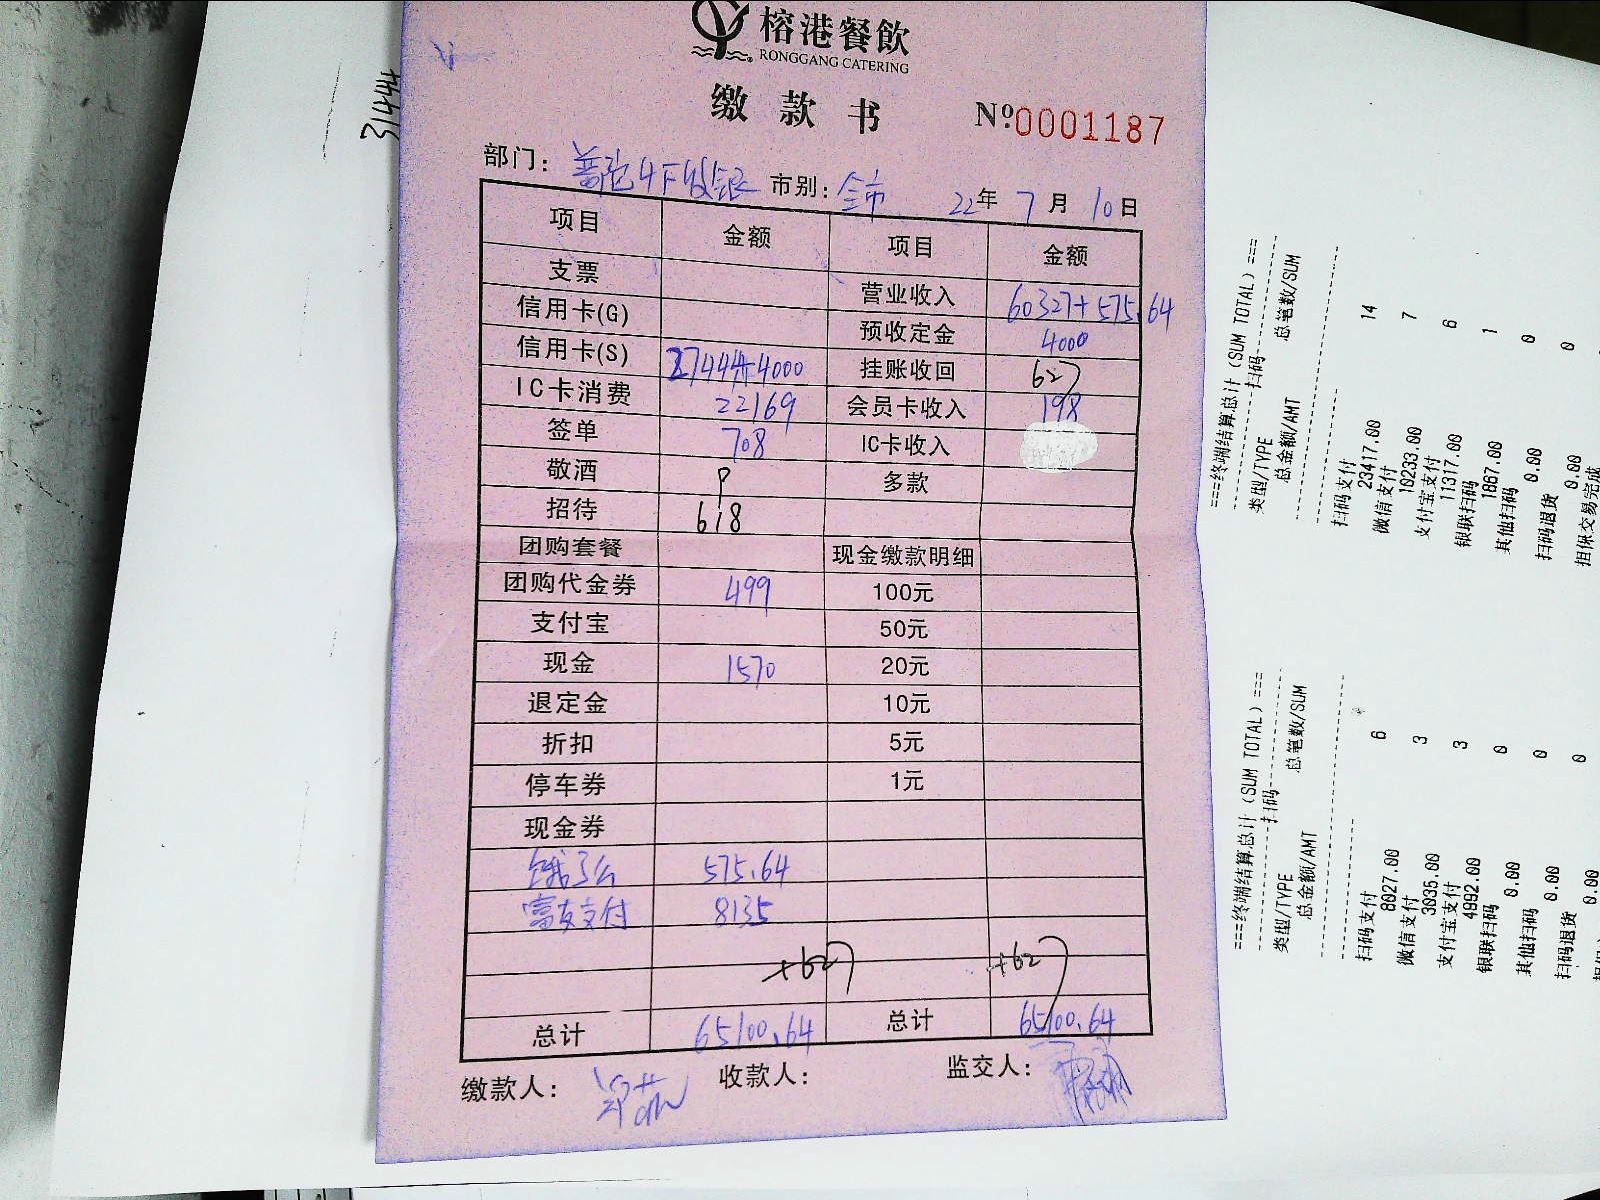 榕港餐飲
RONGGANG CATERING
缴款书 Nº 0001187
部门: 普陀4F收银 市别: 全市 22年 7月 10日
项目 金额 项目 金额
支票 营业收入 60327+575.64
信用卡(G) 预收定金 4000
信用卡(S) 27444+4000 挂账收回 627
IC卡消费 22169 会员卡收入 198
签单 708 IC卡收入
敬酒 多款
招待 618
团购套餐 现金缴款明细
团购代金券 499 100元
支付宝 50元
现金 1570 20元
退定金 10元
折扣 5元
停车券 1元
现金券
饿了么 575.64
富友支付 8135
+627 +627
总计 65100.64 总计 65100.64
缴款人: 收款人: 监交人:
31444
===终端结算总计(SUM TOTAL)===
扫码
类型/TYPE 总笔数/SUM
总金额/AMT
扫码支付 14
23417.00
微信支付 7
10233.00
支付宝支付 6
11317.00
银联扫码 1
1867.00
其他扫码 0
0.00
扫码退货 0
0.00
担保交易完成
===终端结算总计(SUM TOTAL)===
扫码
类型/TYPE 总笔数/SUM
总金额/AMT
扫码支付 6
8027.00
微信支付 3
3035.00
支付宝支付 3
4992.00
银联扫码 0
0.00
其他扫码 0
0.00
扫码退货 0
0.00